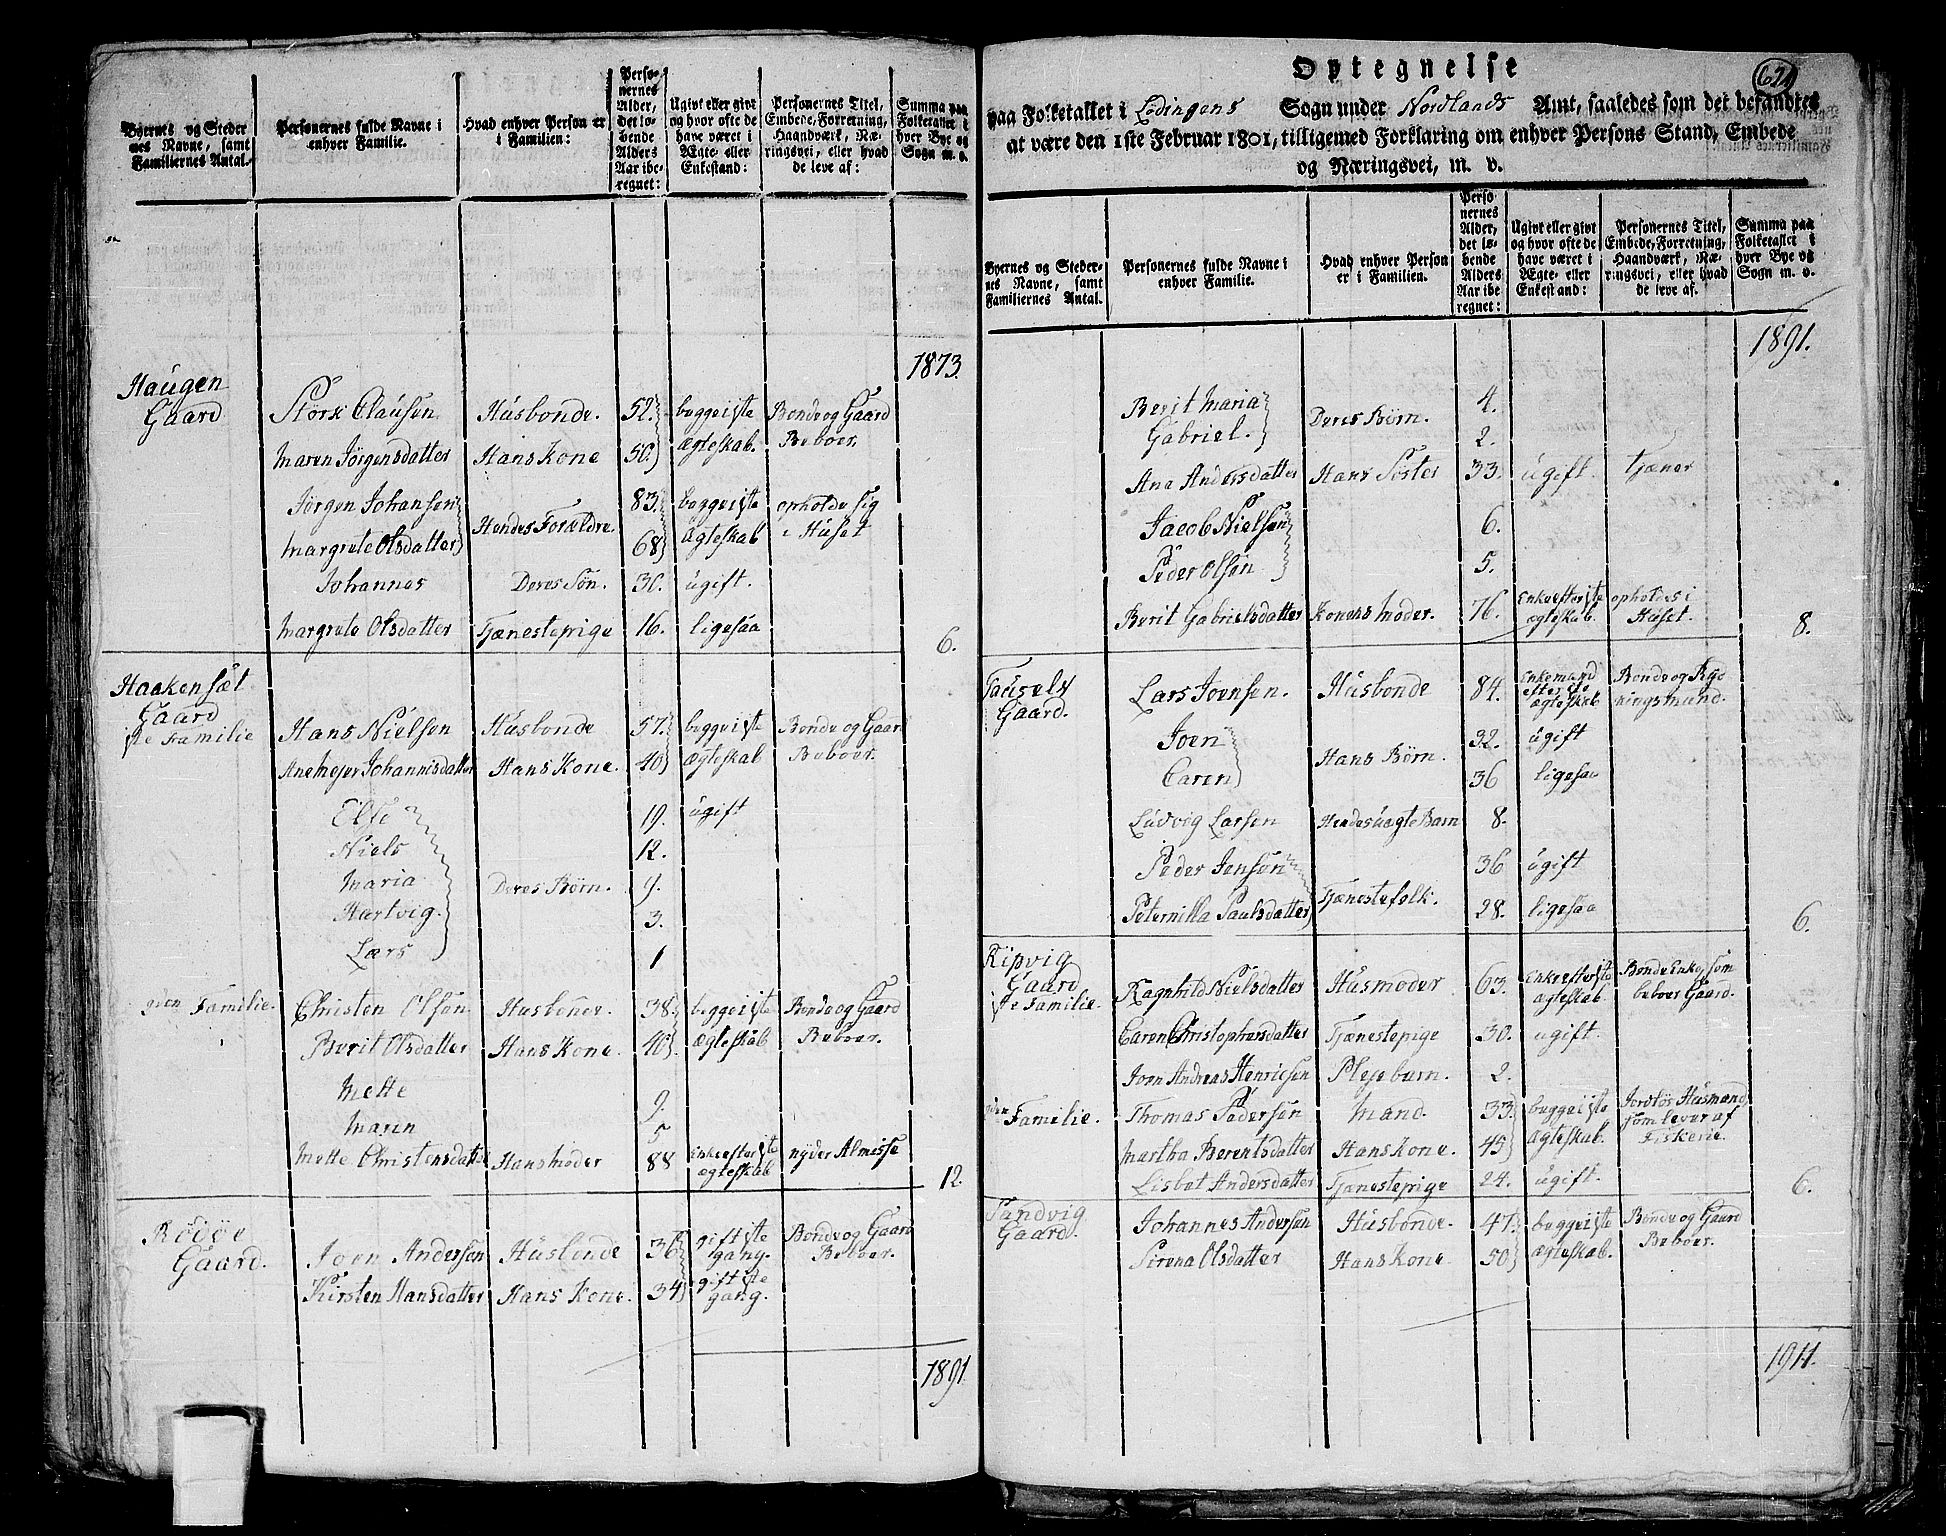 Byernes og Steder
nes Navne, samt
Familiernes Antal.
Personernes fulde Navne i
enhver Familie.
Hvad enhver Person er
i Familien:
Perso-
nernes
Alder,
det lø-
bende
Alders
Aar ibe-
regnet:
Ugivt eller givt
og hvor ofte de
have været i
Ægte- eller
Enkestand:
Personernes Titel,
Embede, Forretning,
Haandværk, Næ-
ringsvei, eller hvad
de leve af:
Summa paa
Folketallet i
hver Bye og
Sogn m. v.
1873.
Haugen
Gaard
Störk Clausen Husbonde. 52. begge i 1ste Bonde og Gaard
Maren Jörgensdatter Hans Kone 50. ægteskab. Beboer.
Jörgen Johansen 83. begge i 1ste opholde sig
Hendes Forældre
Margrete Olsdatter 68 ægteskab i Huset
Johannes Deres Sön. 30. ugift.
Margrete Olsdatter Tjænestepige 16. ligesaa
6.
Haakensæt
Gaard
1ste Familie Hans Nielsen Husbonde 57. begge i 1ste Bonde og Gaard
Ane Mejer Johannisdatter Hans Kone. 40 ægteskab Beboer.
Else 19. ugift
Niels 12.
Maria Deres Börn. 9.
Hartvig. 3.
Lars 1
2den Familie. Christen Olsen Husbonde. 38. begge i 1ste Bonde og Gaard
Berit Olsdatter Hans Kone. 40. ægteskab Beboer.
Mette 9.
Maren 5
Mette Christensdatter Hans Moder 88 Enke efter 1ste nyder Almisse
ægteskab
12.
Rödöe
Gaard. Joen Andersen Husbonde 36 gift 1ste Bonde og Gaard
gang. Beboer
Kirsten Hansdatter Hans Kone. 34 gift 1ste
gang.
1891.
Optegnelse
paa Folketallet i Lödingens Sogn under Nordlands Amt, saaledes som det befandtes
at være den 1ste Februar 1801, tilligemed Forklaring om enhver Persons Stand, Embede
og Næringsvei, m. v.
Byernes og Steder-
nes Navne, samt
Familiernes Antal.
Personernes fulde Navne i
enhver Familie.
Hvad enhver Person
er i Familien.
Perso
nernes
Alder,
det lø-
bende
Alders
Aar ibe
regnet:
Ugivt eller givt
og hvor ofte de
have været i
Ægte- eller
Enkestand:
Personernes Titel,
Embede, Forretning,
Haandværk, Næ-
ringsvei, eller hvad
de leve af.
Summa paa
Folketallet i
hver Bye og
Sogn m. v.
1891.
Berit Maria 4.
Deres Börn.
Gabriel. 2.
Ane Andersdatter Hans Söster 33. ugift. tjæner
Jacob Nielsen 6.
Peder Olsen 5.
Berit Gabrielsdatter Konens Moder. 76. Enke efter 1ste opholdes i
ægteskab. Huset.
8.
Gaard. Lars Joensen. Husbonde 84. Enkemand Bonde og
efter
ægteskab
Joen 32. ugift
Hans Börn.
Caren 36 ligesaa
Ludvig Larsen Hendes uægte Barn 8.
Peder Jensen 36 ugift
Tjænestefolk.
Peternilla Paulsdatter 28. ligesaa
6.
Ripvig
Gaard
1ste Familie. Ragnhild Nielsdatter Husmoder 63. Enke efter 1ste Bonde Enke som
ægteskab. beboer Gaard.
Caren Christophersdatter Tjænestepige 30. ugift.
Joen Andreas Henricsen Plejebarn. 2.
2den Familie. Thomas Pedersen Mand. 33. begge i 1ste Jordlös Husmand
Martha Berentsdatter Hans Kone. 45 ægteskab. som lever af
Fiskerie.
Lisbet Andersdatter Tjænestepige 24. ugift.
6.
Sandvig
Gaard. Johannes Andersen Husbonde. 47. begge i 1ste Bonde og Gaard
Sirena Olsdatter Hans Kone 50 ægteskab. Beboer.
1911.